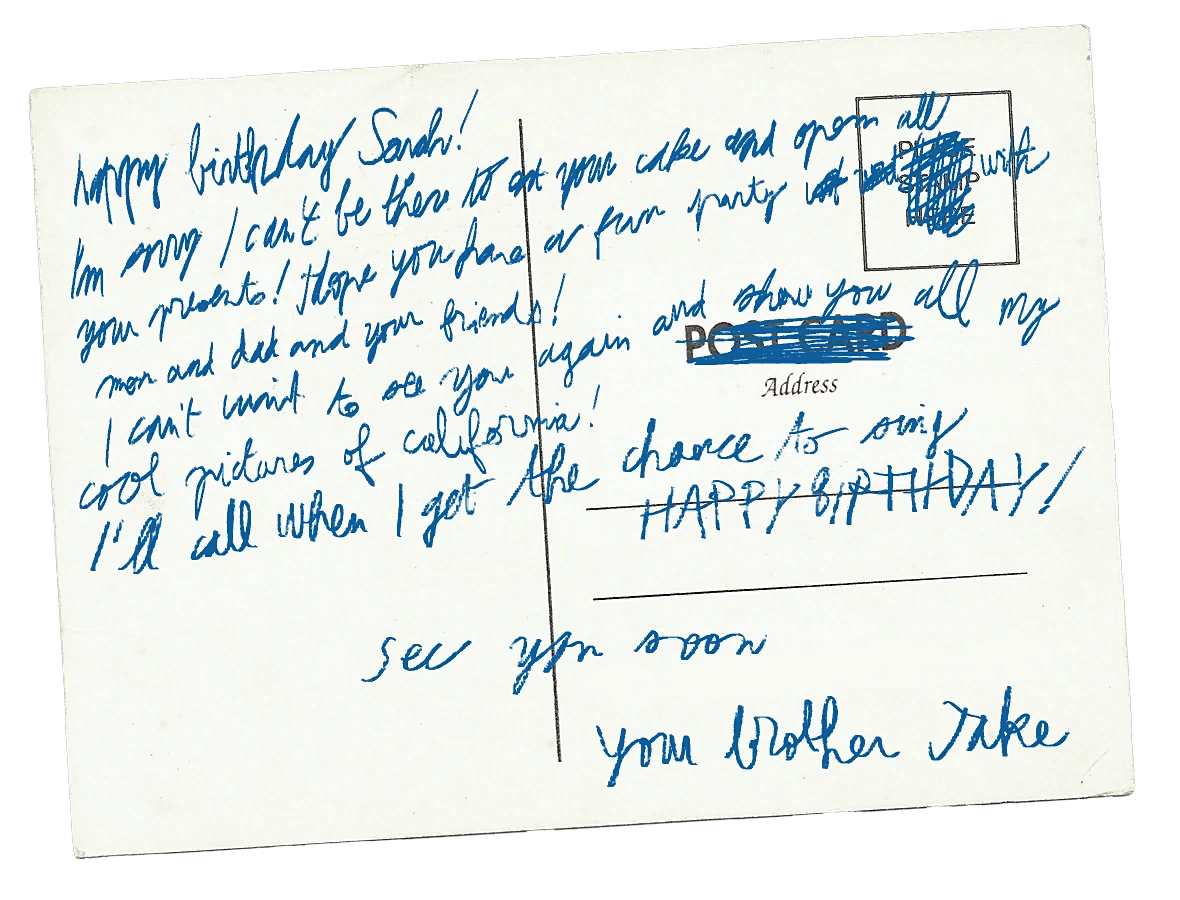 happy birthday Sarah!
I'm sorry I can't be there to eat your cake and open all
your presents! I hope you have a fun party with
mom and dad and your friends!
I can't wait to see you again and show you all my
cool pictures of california!
I'll call when I get the chance to sing
HAPPY BIRTHDAY!
see you soon
your brother Jake
POST CARD
Address